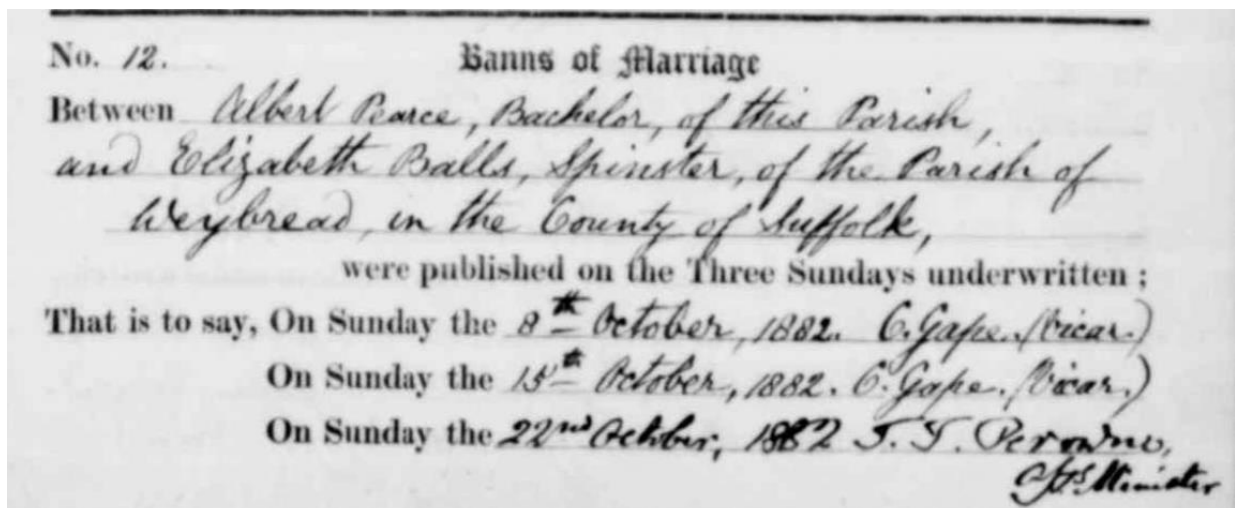 No. 12. Banns of Marriage
Between Albert Pearce, Bachelor, of this Parish,
and Elizabeth Balls, Spinster, of the Parish of
Weybread, in the County of Suffolk,
were published on the Three Sundays underwritten ;
That is to say, On Sunday the 8th October, 1882. C. Gape. (Vicar.)
On Sunday the 15th October, 1882. C. Gape. (Vicar.)
On Sunday the 22nd October, 1882 T. T. Perowne,
Minister